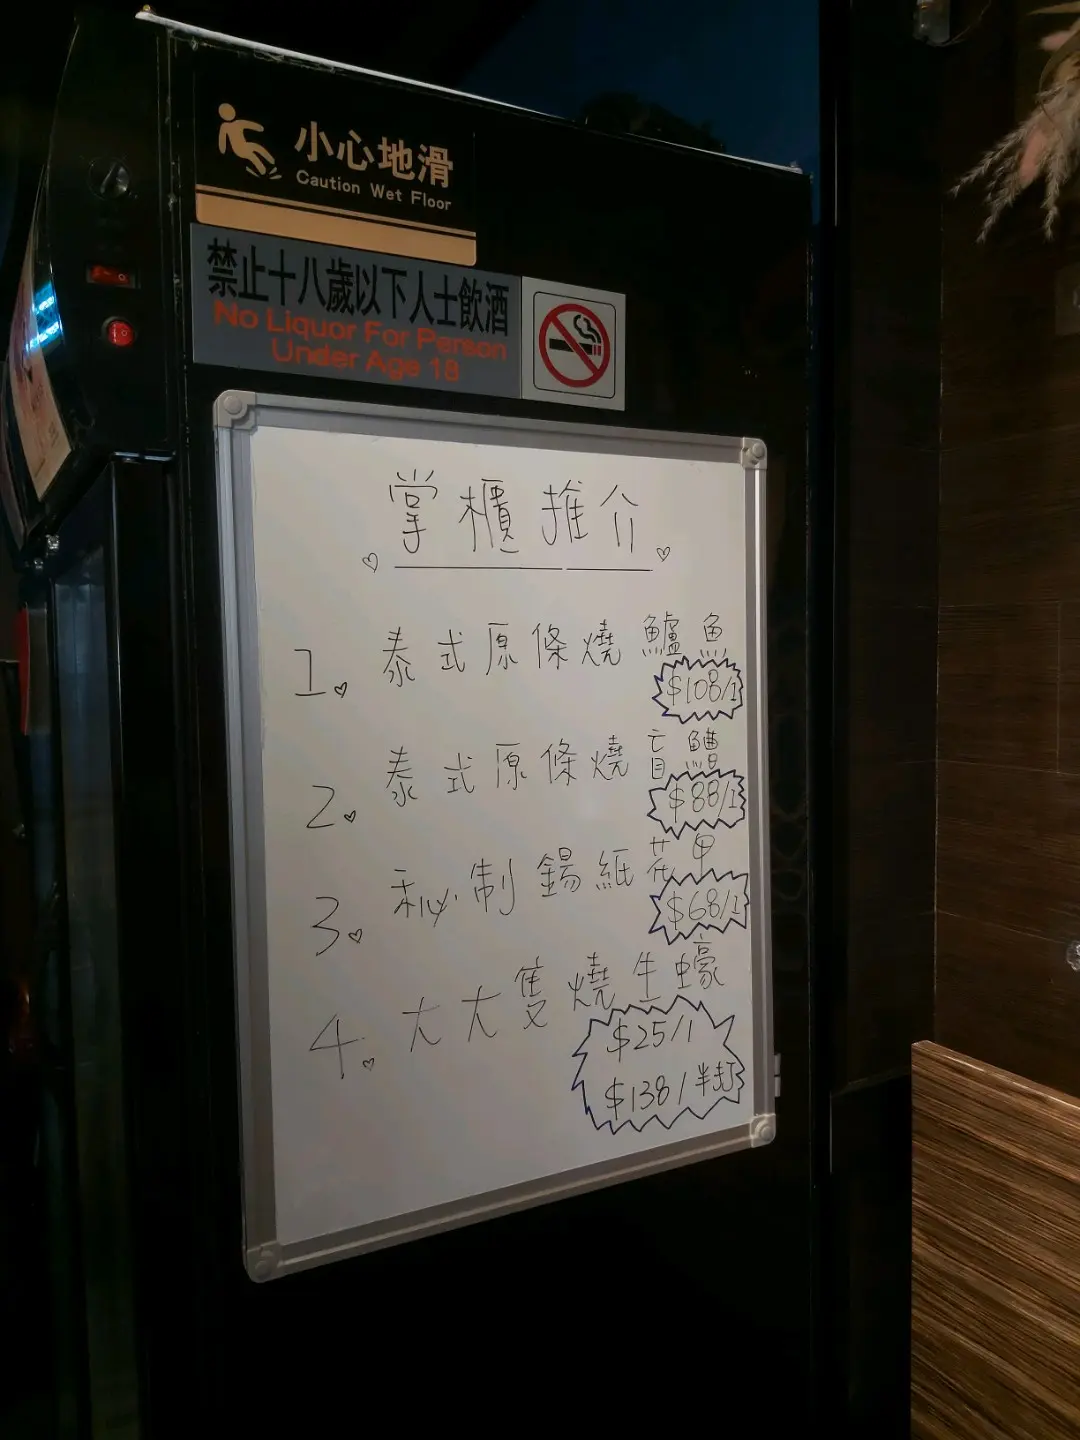 小心地滑
Caution Wet Floor
禁止十八歲以下人士飲酒
No Liquor For Person
Under Age 18
掌櫃推介
1. 泰式原條燒鱸魚
$108/1
2. 泰式原條燒盲鰽
$88/1
3. 秘制錫紙花甲
$68/1
4. 大大隻燒生蠔
$25/1
$138/半打